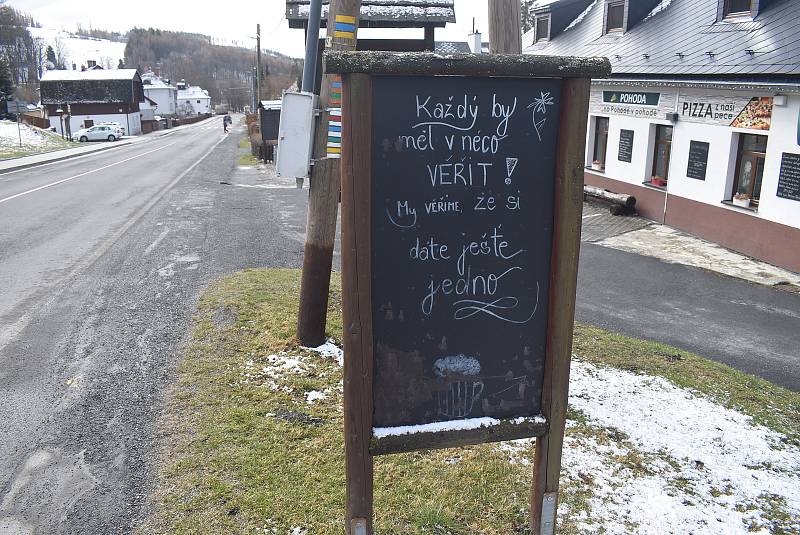 Každý by
měl v něco
VĚŘIT!
My VĚŘÍME, že si
dáte ještě
jedno
POHODA
na Pohodě v pohodě
PIZZA z naší
pece